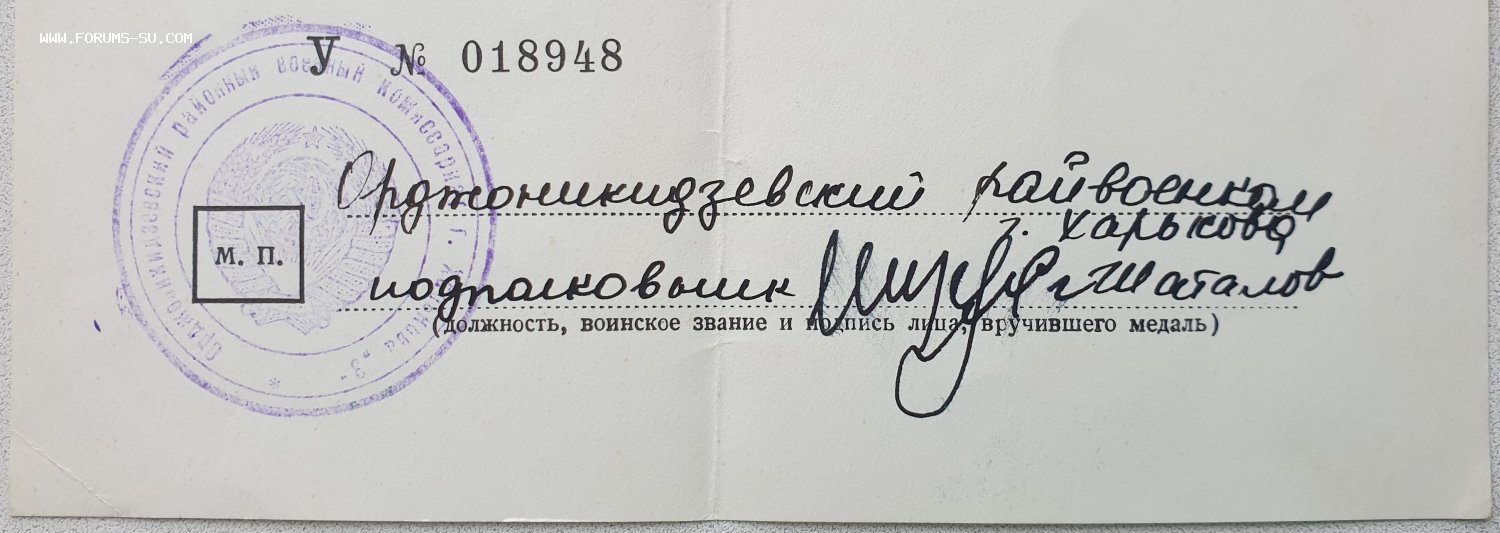 WWW.FORUMS-SU.COM
У № 018948
Орджоникидзевский районный военный комиссариат г. Харькова „3"
Орджоникидзевский райвоенком
г. Харькова
М. П.
подполковник Шаталов
(должность, воинское звание и подпись лица, вручившего медаль)